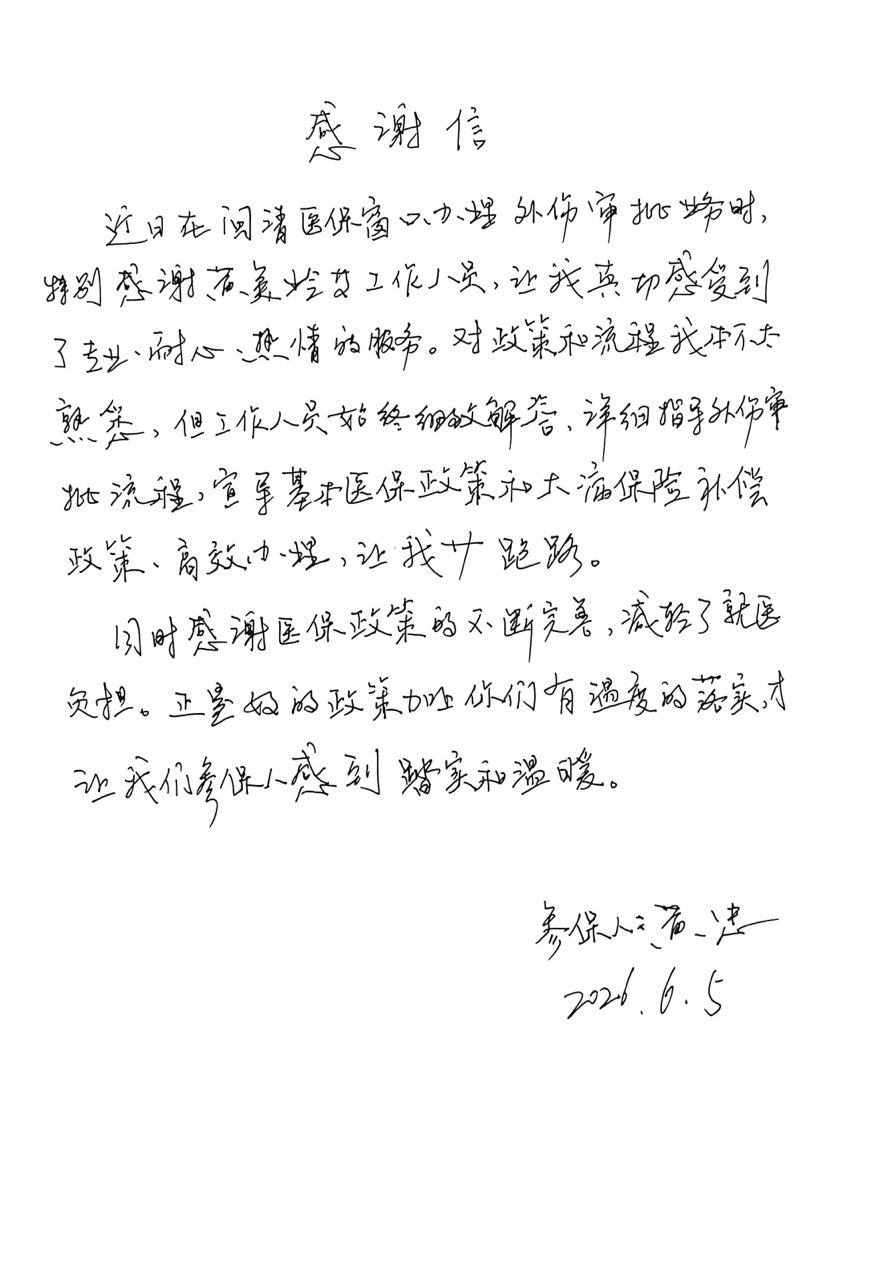 感谢信
近日在闽清医保窗口办理外伤审批业务时,
特别感谢黄美玲等工作人员,让我真切感受到
了专业、耐心、热情的服务。对政策和流程我本不太
熟悉,但工作人员始终细致解答、详细指导外伤审
批流程,宣导基本医保政策和大病保险补偿
政策、高效办理,让我少跑路。
同时感谢医保政策的不断完善,减轻了就医
负担。正是好的政策加上你们有温度的落实,才
让我们参保人感到踏实和温暖。
参保人:黄忠
2026.6.5